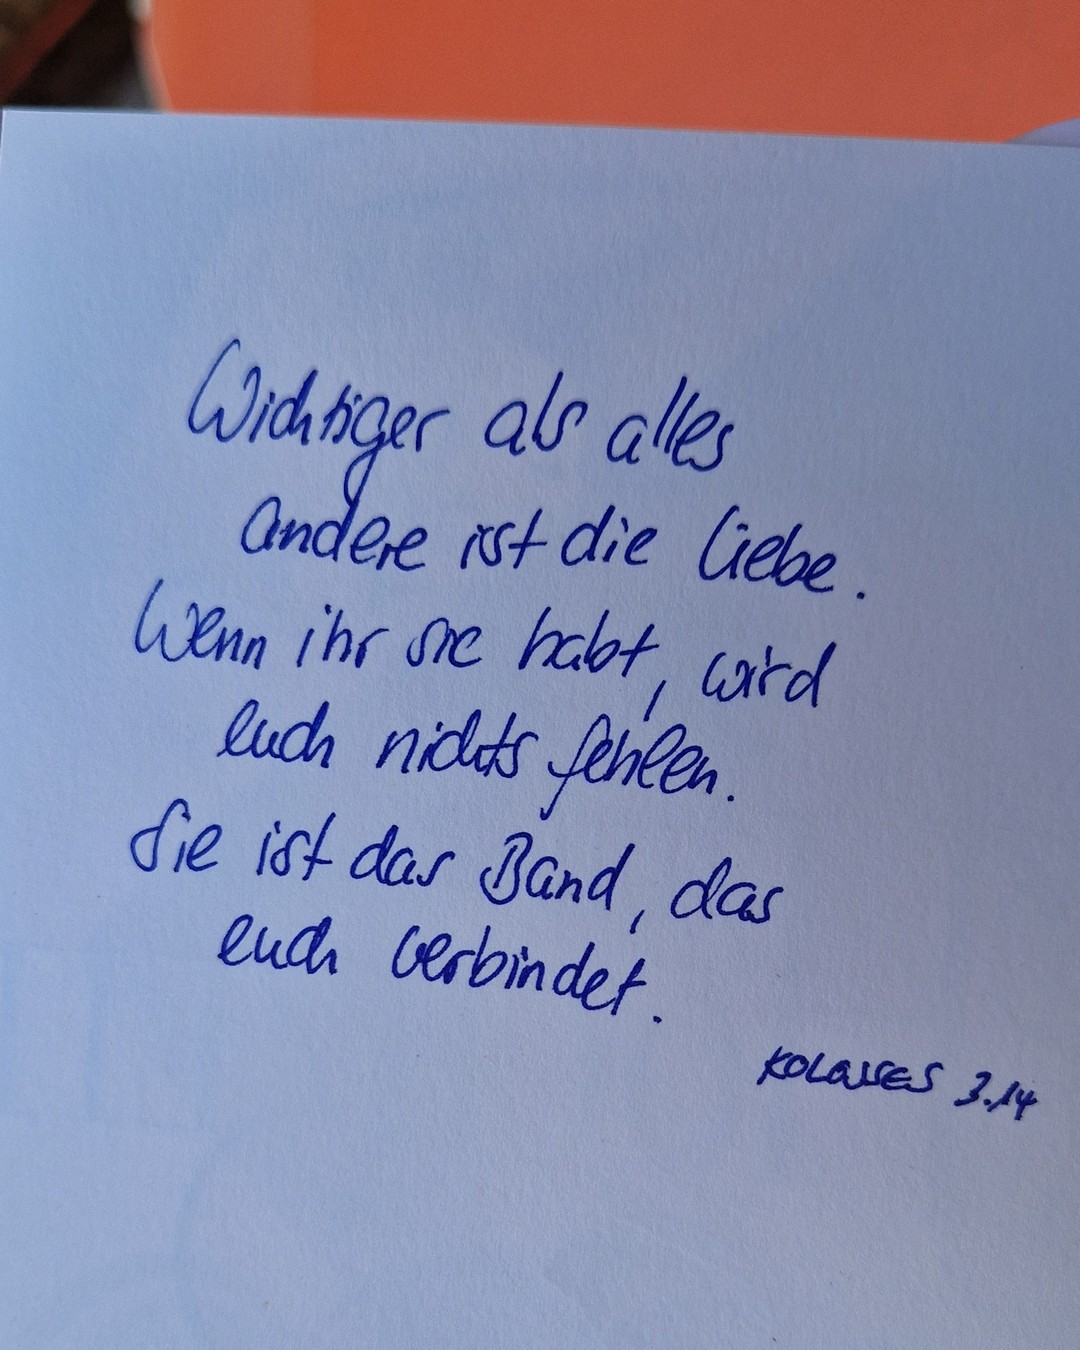 Wichtiger als alles
andere ist die Liebe.
Wenn ihr sie habt, wird
euch nichts fehlen.
Sie ist das Band, das
euch verbindet.
KOLOSSES 3.14